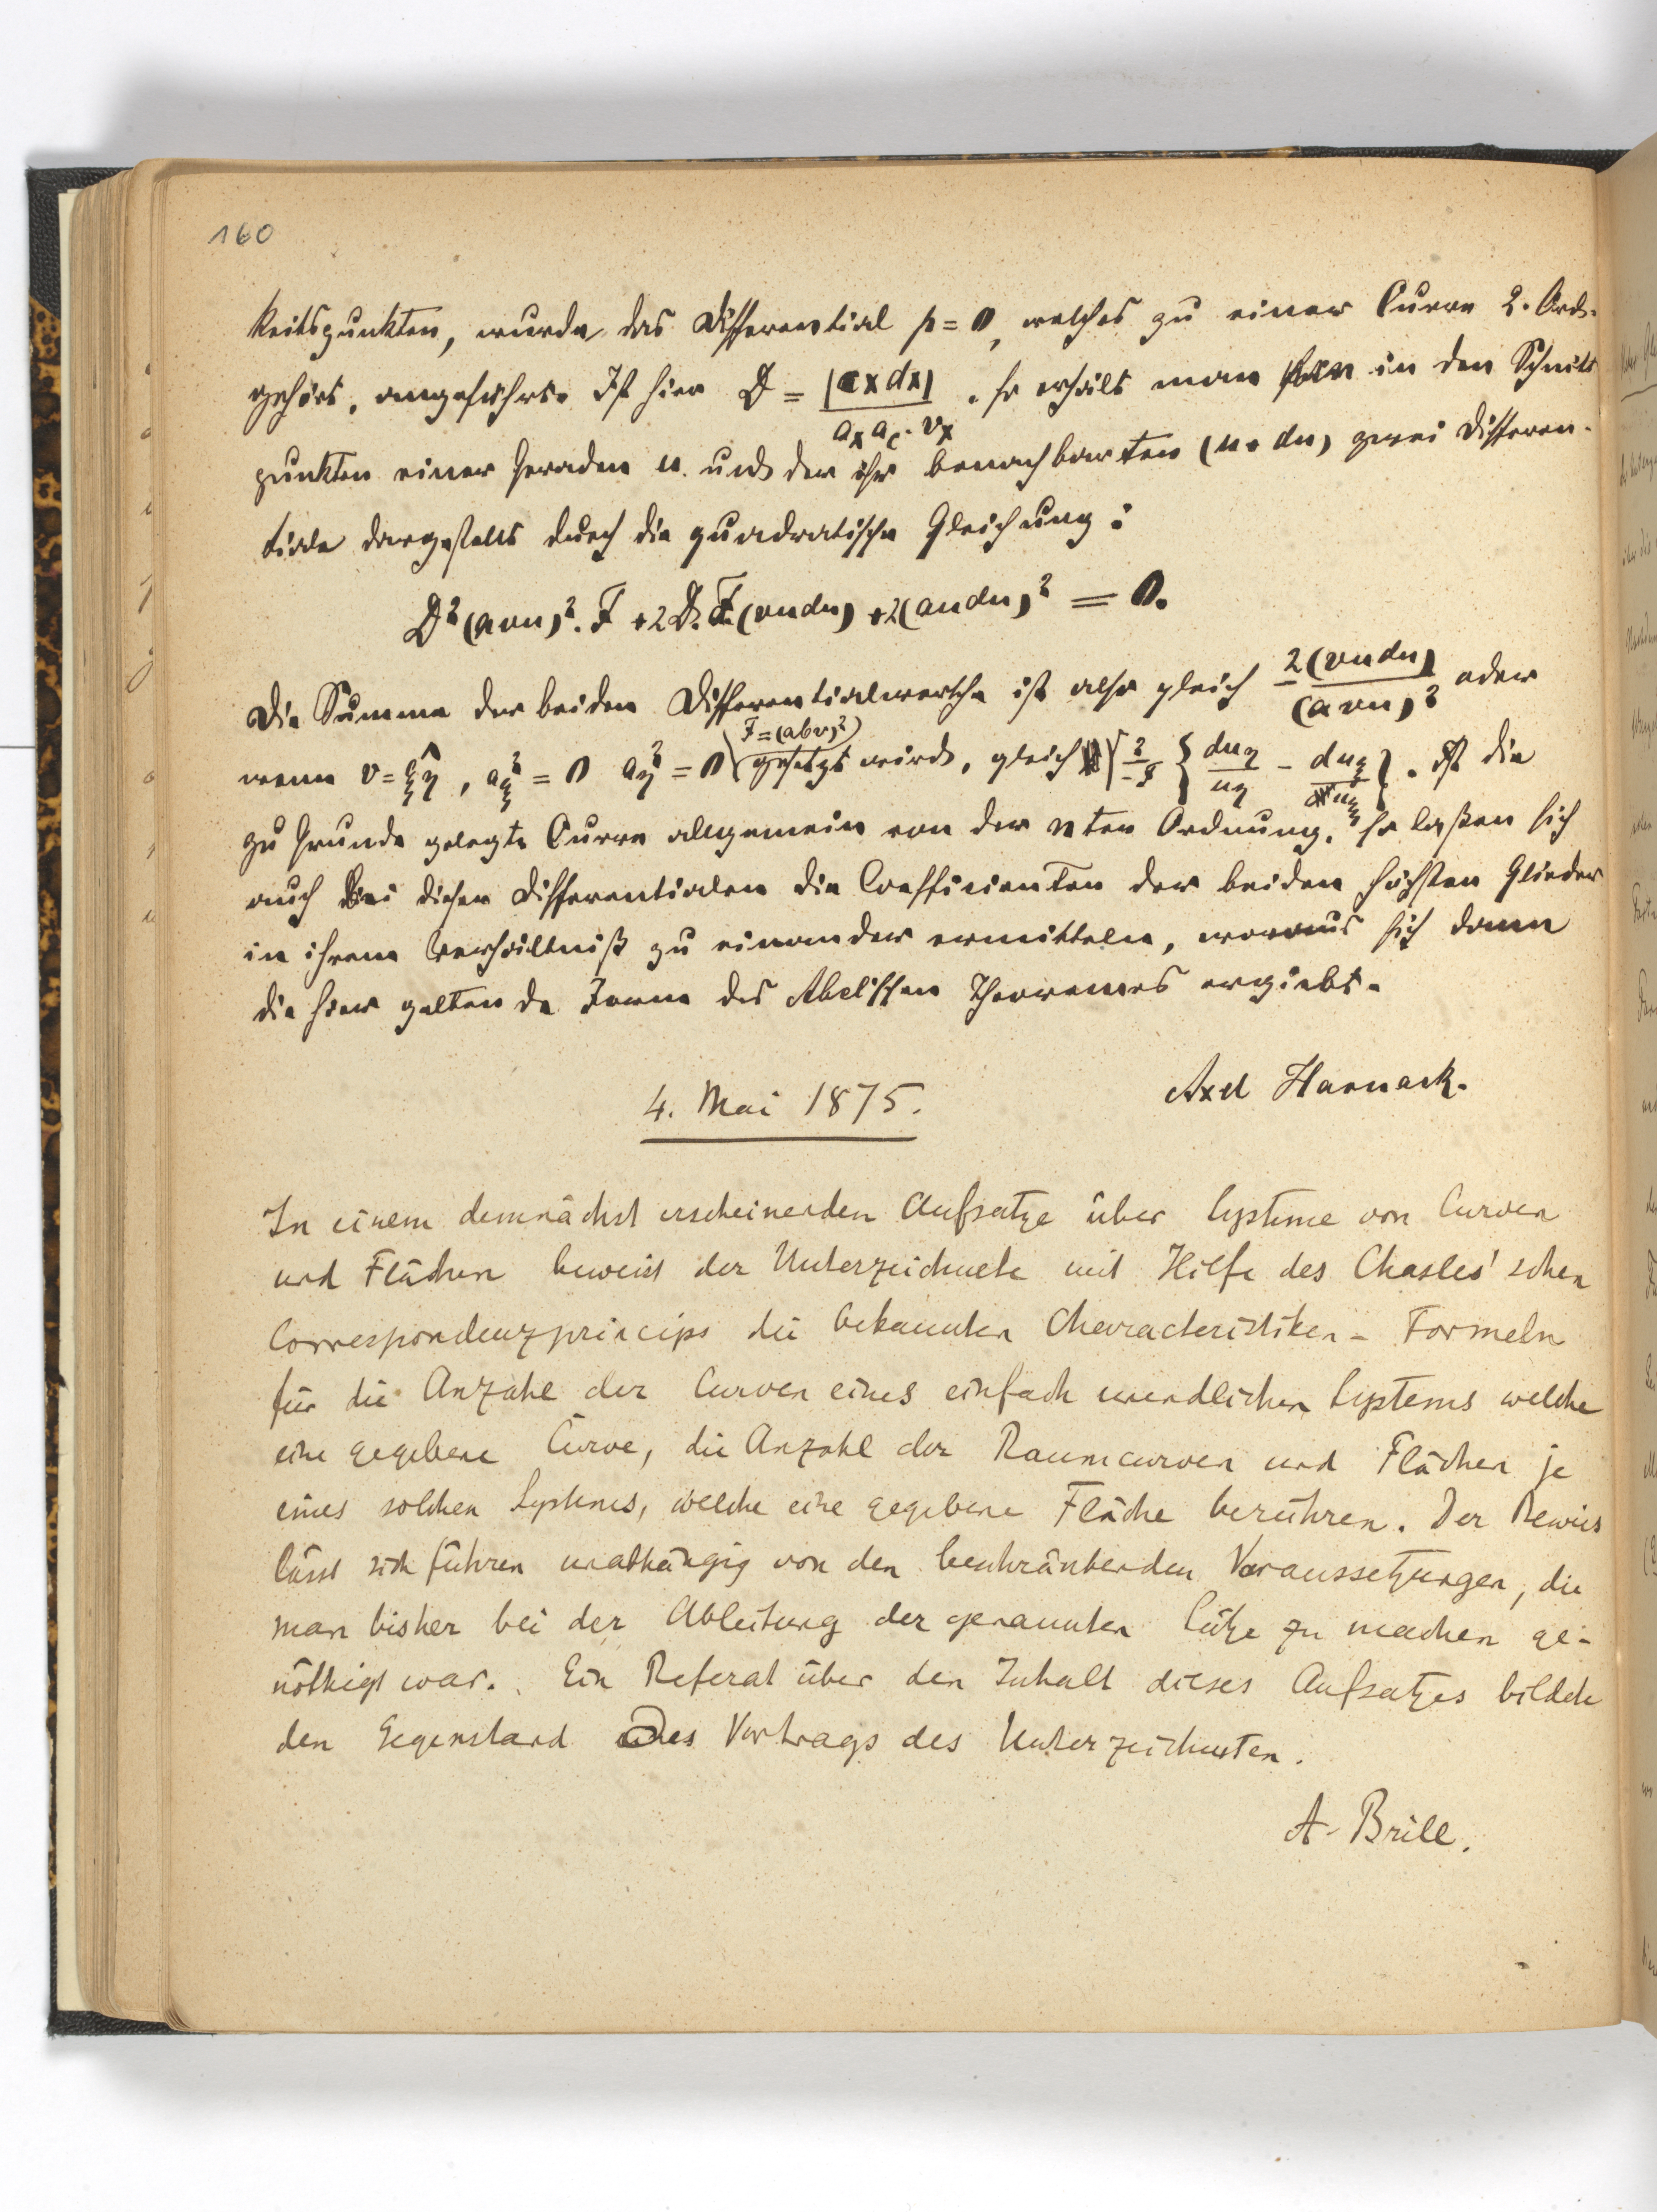 160
keitspunkten, wurde das Differential p = 0, welches zu einer Curve 2. Ord-
gehört, angeführt. Ist hier D = |cxdx| / a_x a_c . v_x , so erhält man in den Schnitt
punkten einer Geraden u. und der ihr benachbarten (u+du) zwei Differen-
tiale dargestellt durch die quadratische Gleichung:
D²(avu)². F + 2D. F.(vudu) + 2(audu)² = 0.
Die Summe der beiden Differentialwerthe ist also gleich -2(vudu) / (avu)² oder
wenn v = ξ͡η, a_ξ² = 0 a_η² = 0 F=(abv)² gesetzt wird, gleich { du_η / u_η - du_ξ / u_ξ }. Ist die
zu Grunde gelegte Curve allgemein von der nten Ordnung, so laßen sich
auch bei diesen Differentialen die Coefficienten der beiden höchsten Glieder
in ihrem Verhältniß zu einander ermitteln, woraus sich dann
die hier geltende Form des Abelschen Theoremes ergiebt.
Axel Harnack.
4. Mai 1875.
In einem demnächst erscheinenden Aufsatze über Systeme von Curven
und Flächen beweist der Unterzeichnete mit Hilfe des Chasles'schen
Correspondenzprincips die bekannten Characteristiken-Formeln
für die Anzahl der Curven eines einfach unendlichen Systems welche
eine gegebene Curve, die Anzahl der Raumcurven und Flächen je
eines solchen Systemes, welche eine gegebene Fläche berühren. Der Beweis
lässt sich führen unabhängig von den beschränkenden Voraussetzungen, die
man bisher bei der Ableitung der genannten Sätze zu machen ge-
nöthigt war. Ein Referat über den Inhalt dieses Aufsatzes bildete
den Gegenstand des Vortrags des Unterzeichneten.
A. Brill.